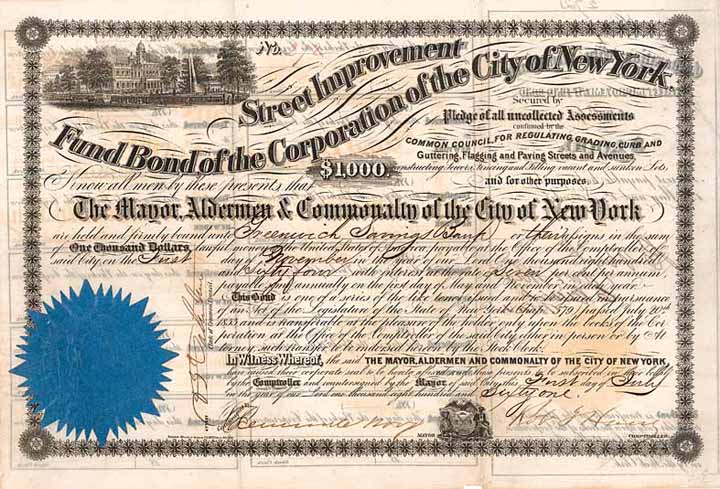 No.
Street Improvement
Fund Bond of the Corporation of the City of New York
Secured by
Pledge of all uncollected Assessments
confirmed by the
COMMON COUNCIL, FOR REGULATING, GRADING, CURB AND
Guttering, Flagging and Paving Streets and Avenues,
$1.000
constructing Sewers, Fencing and Filling vacant and sunken Lots,
and for other purposes
Know all men by these presents that
The Mayor, Aldermen & Commonalty of the City of New York
are held and firmly bound unto Greenwich Savings Bank or their assigns in the sum
of One Thousand Dollars, lawful money of the United States of America, payable at the Office of the Comptroller of
said City on the First day of November in the year of our Lord One thousand eight hundred
and Sixty four with interest at the rate of Seven per cent per annum
payable half annually on the first day of May and November in each year
This Bond is one of a series of the like tenor issued and to be issued in pursuance
of an Act of the Legislature of the State of New York Chap. 579, passed July 20th
and is transferable at the pleasure of the holder, only upon the books of the Cor-
poration at the Office of the Comptroller of the said City either in person or by At-
torney, such transfer to be indorsed hereon by the
In Witness Whereof, the said THE MAYOR, ALDERMEN AND COMMONALTY OF THE CITY OF NEW YORK,
have caused their corporate seal to be hereto affixed and these presents to be subscribed in their behalf
by the Comptroller and countersigned by the Mayor of said City this First day of July
in the year of our Lord one thousand eight hundred and Sixty one.
MAYOR
COMPTROLLER